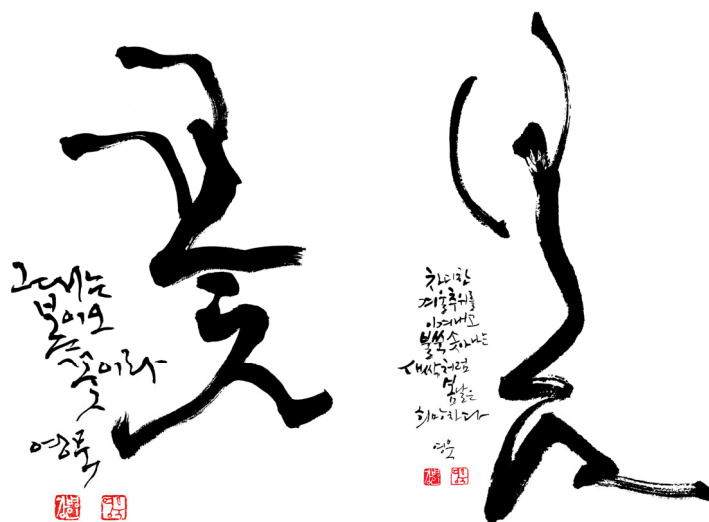 꽃
그대는
봄이오
꽃이라
영묵
봄
차디찬
겨울추위를
이겨내고
불쑥 솟아나는
새싹처럼
봄날은
희망차다
영묵